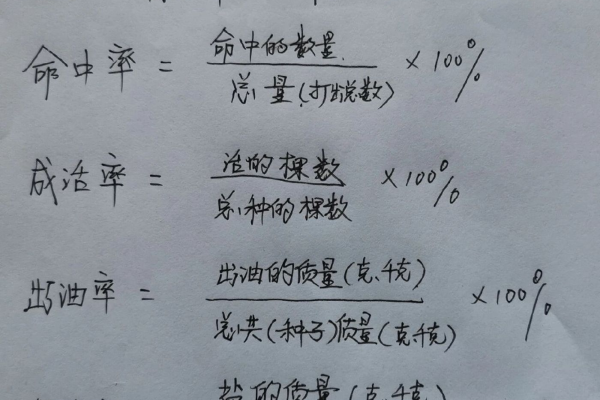 命中率 = 命中的数量 / 总量(打出总数) × 100%
成活率 = 活的棵数 / 总种的棵数 × 100%
出油率 = 出油的质量(克、千克) / 总共(种子)质量(克千克) × 100%
盐的质量(克、千克)